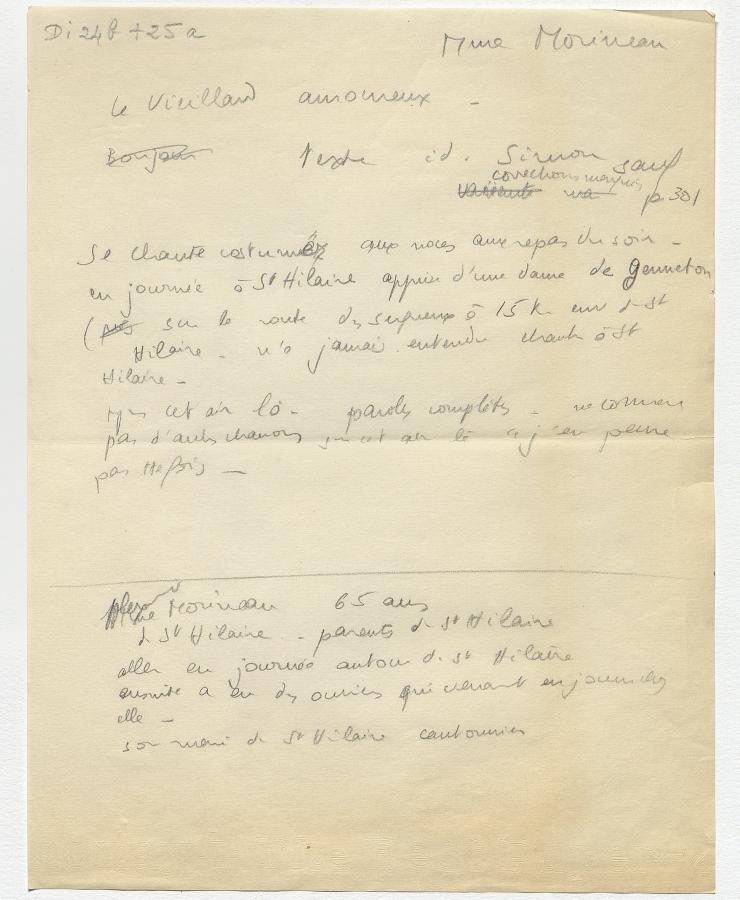 Di 24b + 25a
Mme Morineau
Le Vieillard amoureux -
Bonjour Texte id. Simon sauf
corrections marquées
variante p 301
Se chante costumés aux noces aux repas du soir -
en journée à St Hilaire apprise d'une dame de Genneton,
( sur la route à 15 k env d St
Hilaire - n'a jamais entendu chanter à St
Hilaire -
cet air là - paroles complètes - ne connait
pas d'autres chansons sur cet air là
pas
Mme Morineau 65 ans
d St Hilaire - parents d St Hilaire
aller en journée autour d. St Hilaire
ensuite a eu des ouvriers qui venaient en journée chez
elle -
son mari de St Hilaire cantonnier